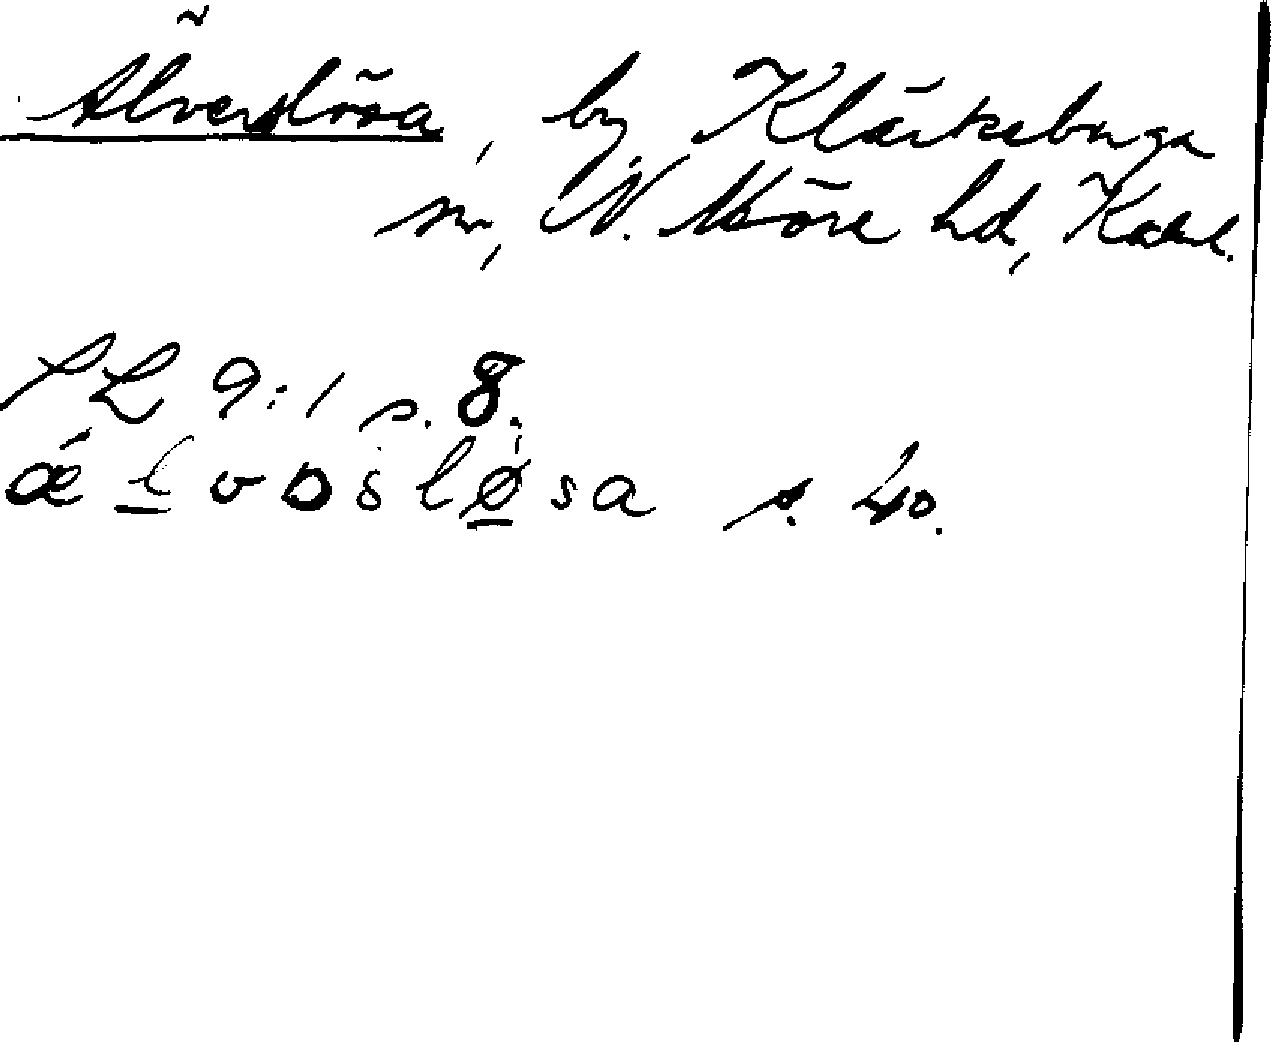 Älverslösa, by, Kläckeberga
sn, N. Möre hd, Kalml.
SL 9:1 s. 8.
ǽlvɒsløsa s. 40.